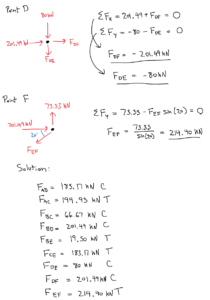 Point D
80 kN
201.49 kN
F_DF
F_DE
ΣF_x = 201.49 + F_DF = 0
ΣF_y = -80 - F_DE = 0
F_DF = -201.49 kN
F_DE = -80 kN
Point F
73.33 kN
201.49 kN
20°
F_EF
ΣF_y = 73.33 - F_EF sin(20) = 0
F_EF = 73.33 / sin(20) = 214.40 kN
Solution:
F_AB = 183.17 kN C
F_AC = 194.95 kN T
F_BC = 66.67 kN C
F_BD = 201.49 kN C
F_BE = 19.50 kN T
F_CE = 183.17 kN T
F_DE = 80 kN C
F_DF = 201.49 kN C
F_EF = 214.40 kN T